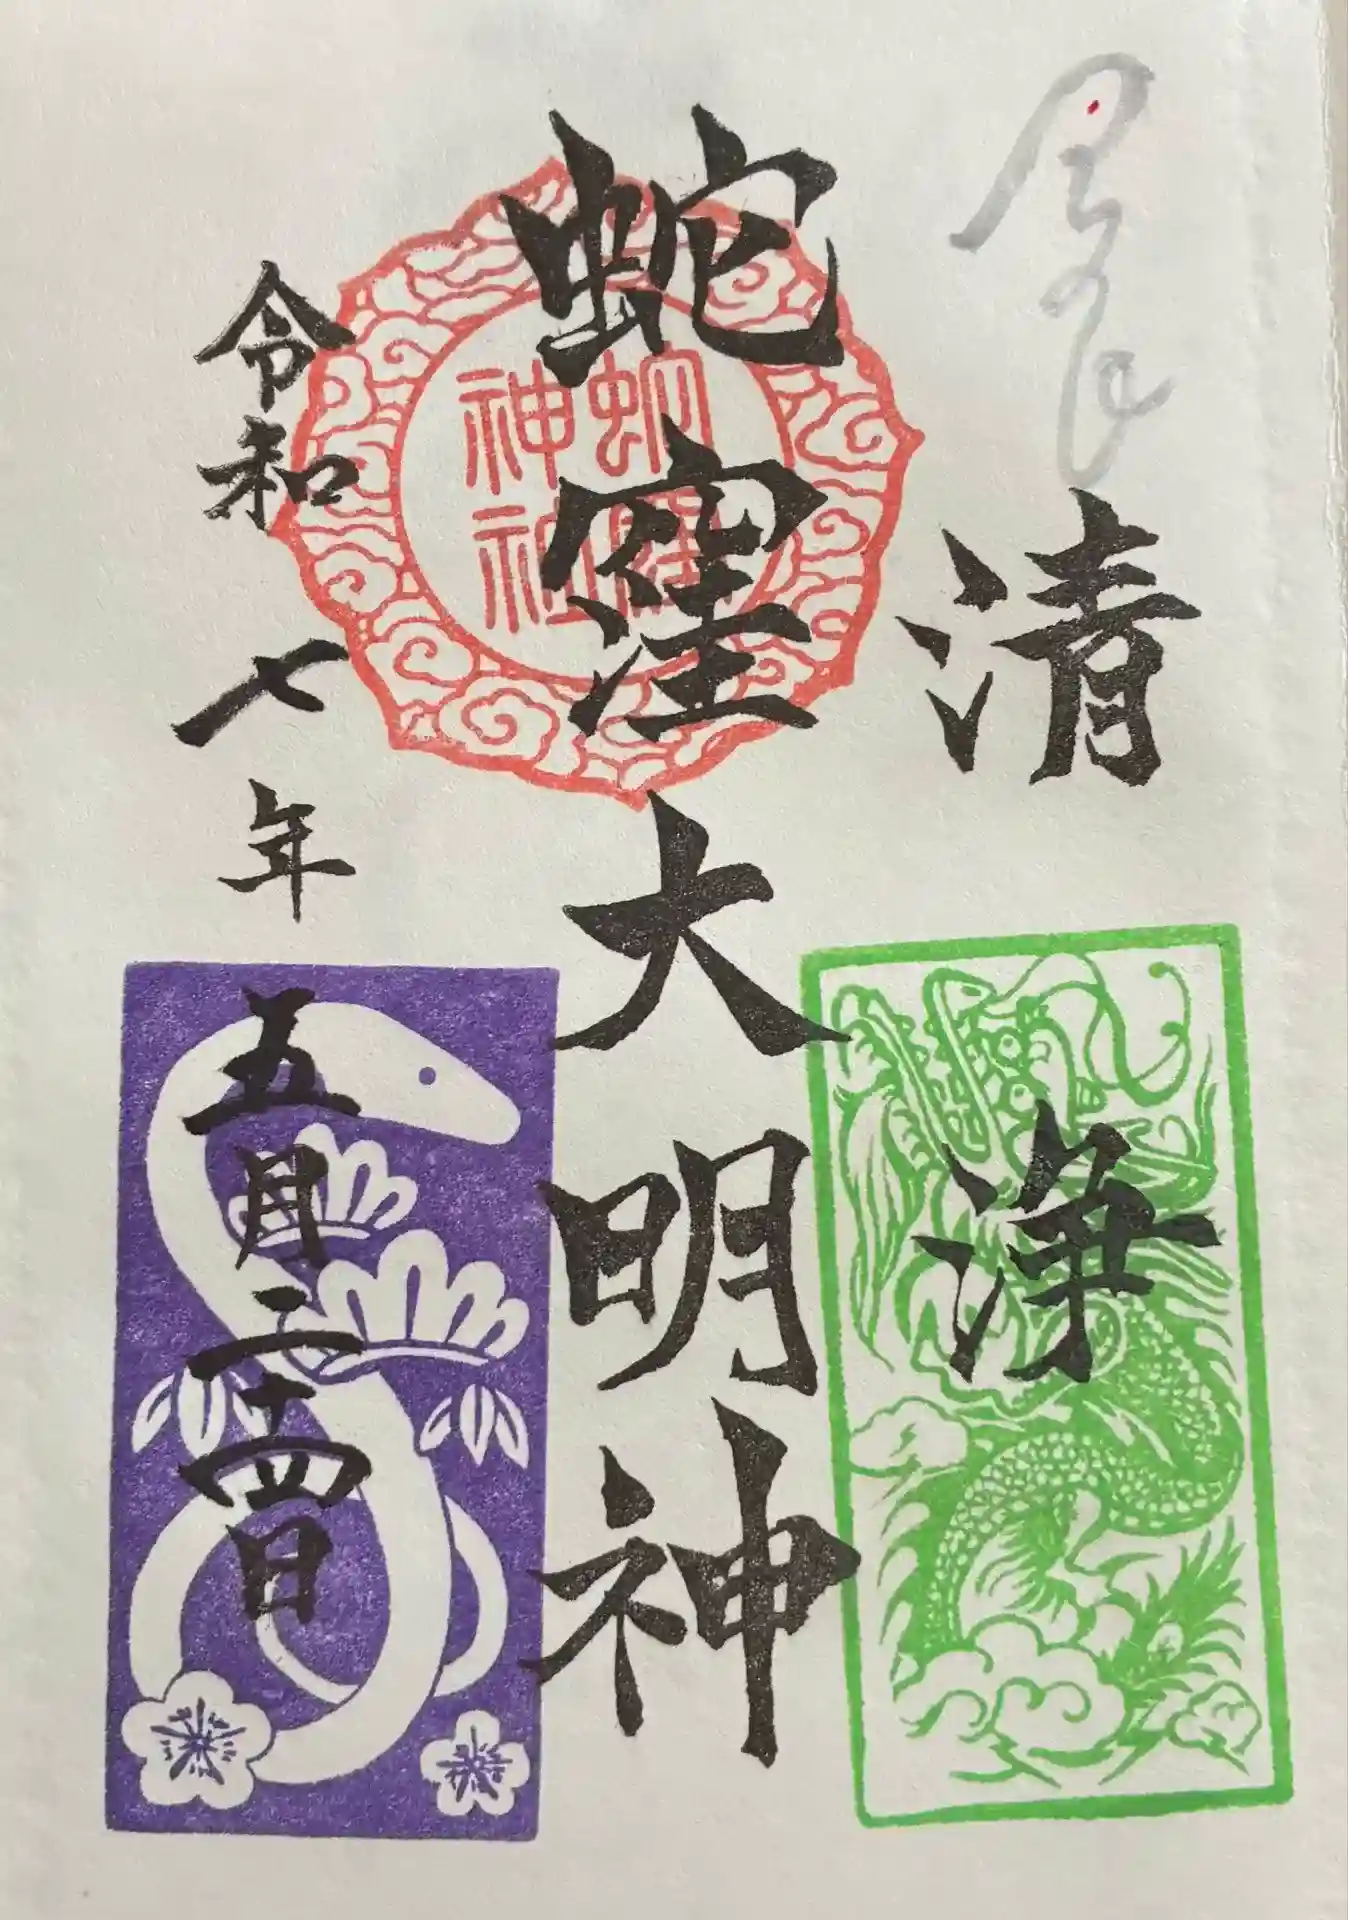 清浄
蛇窪大明神
蛇窪
神社
令和七年五月二十四日